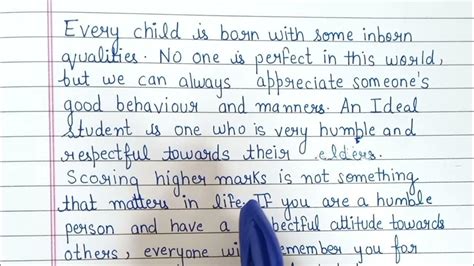 Every child is born with some inborn
qualities. No one is perfect in this world,
but we can always appreciate someone's
good behaviour and manners. An Ideal
Student is one who is very humble and
respectful towards their elders.
Scoring higher marks is not something
that matters in life. If you are a humble
person and have a ectful attitude towards
others, everyone wi emember you for